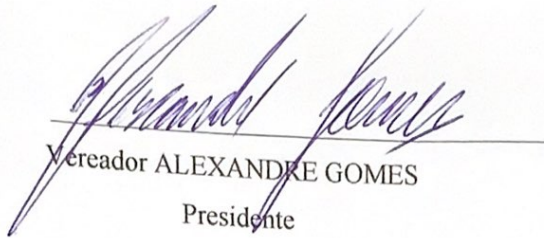 Alexandre Gomes
Vereador ALEXANDRE GOMES
Presidente